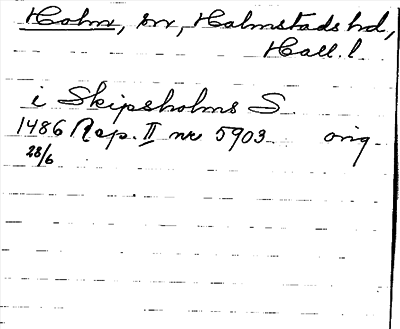 Holm, sn, Halmstads hd,
Hall. l.
i Skipsholms S
1486 Rap. II nr 5903 orig.
28/6